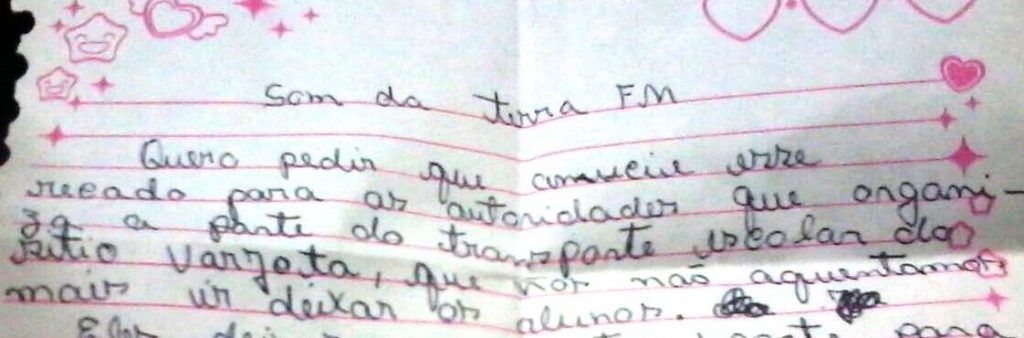 Som da terra FM
Quero pedir que anuncie esse
recado para as autoridades que organi-
za a parte do transporte escolar do
sitio Varzota, que nós não aguentamos
mais ir deixar os alunos.
Eles para